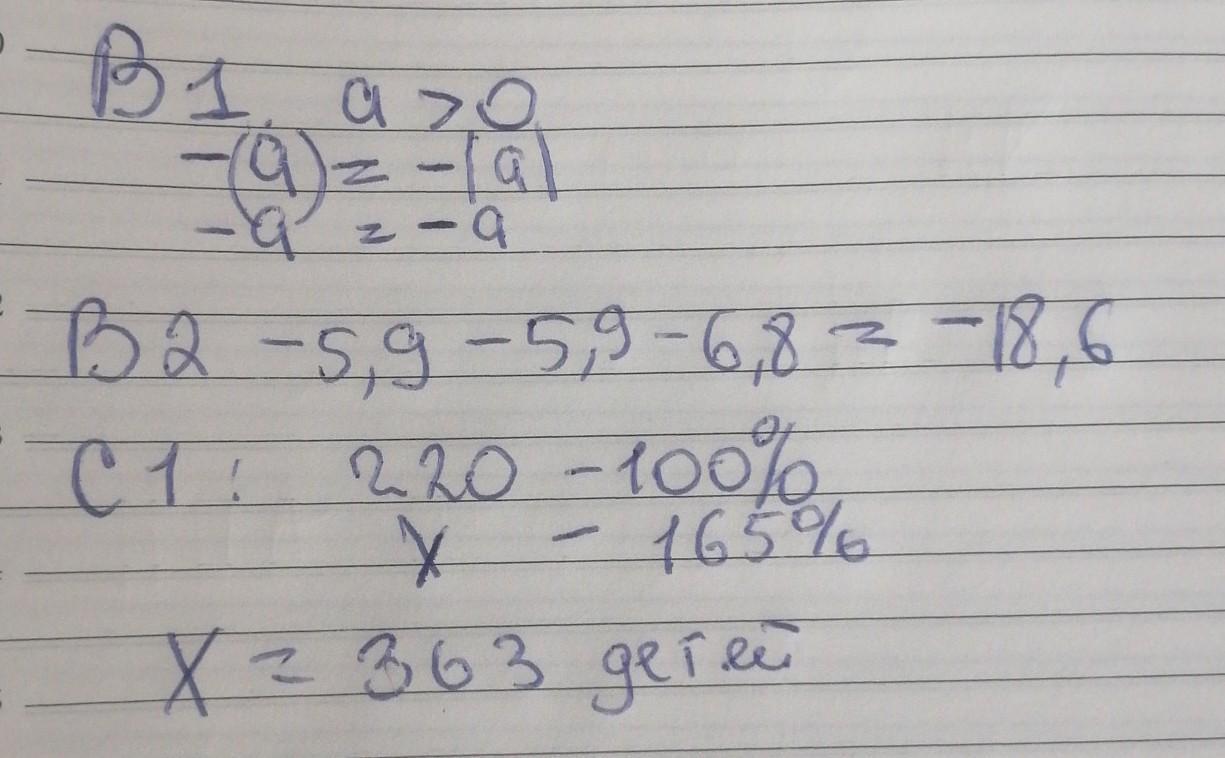 В 1. a > 0
-(a) = -|a|
-a = -a
В 2 -5,9 -5,9 -6,8 = -18,6
С 1: 220 - 100%
х - 165%
х = 363 детей